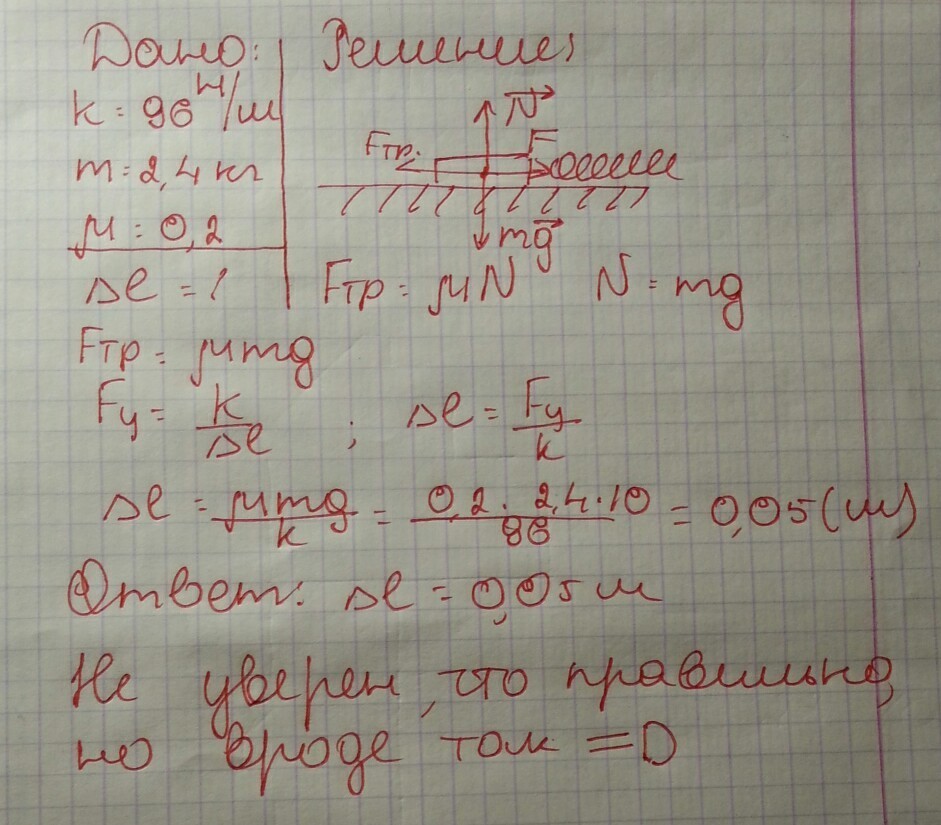 Дано: Решение:
k = 96 Н/м
m = 2,4 кг
μ = 0,2
Δl = ?
N
Fтр.
F
mg
Fтр = μN N = mg
Fтр = μmg
Fу = k/Δl ; Δl = Fу/k
Δl = μmg/k = 0,2 · 2,4 · 10/96 = 0,05 (м)
Ответ: Δl = 0,05 м
Не уверен, что правильно,
но вроде так =D